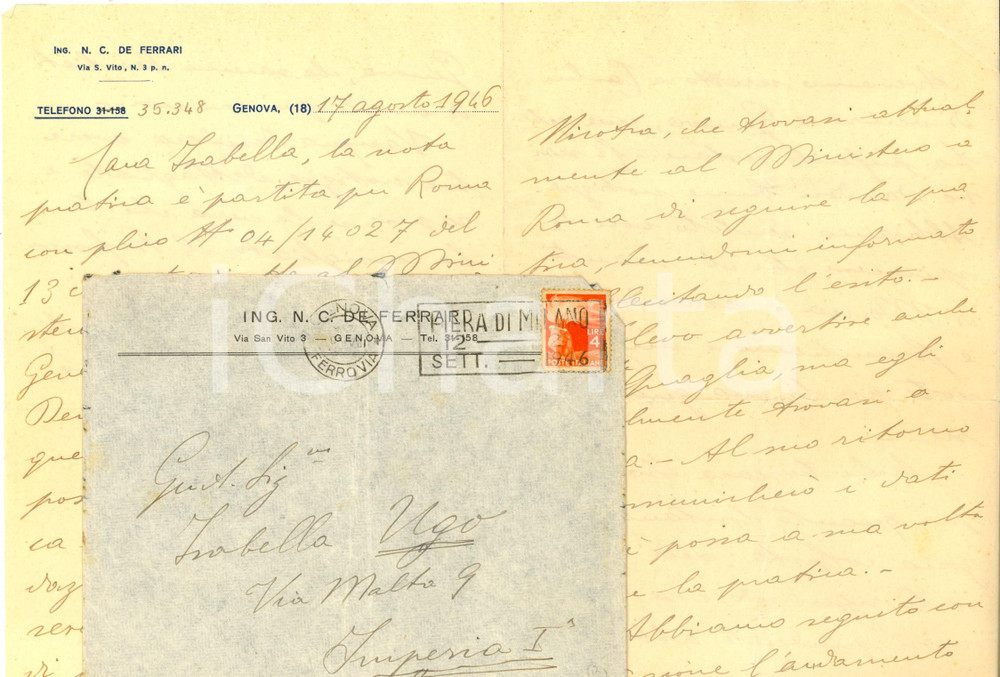 ING. N. C. DE FERRARI
Via S. Vito, N. 3 p. n.
TELEFONO 31-158 35.348 GENOVA, (18) 17 agosto 1946
Cara Isabella, la nota
pratica è partita per Roma
con plico # 04/14027 del
13
Gene
que
pos
ca
daz
sere
di
Nicotra, che trovasi attual-
mente al Ministero a
Roma di seguire la pra
tica, tenendomi informato
llecitando l'esito.-
llevo avvertire anche
Quaglia, ma egli
lmente trovasi a
a.- Al suo ritorno
municherò i dati
è possa a sua volta
e la pratica.-
Abbiamo seguito con
sione l'andamento
ING. N. C. DE FERRARI
Via San Vito 3 — GENOVA — Tel. 31-158
GENOVA
FERROVIA
FIERA DI MILANO
12 —
SETT. — 1946
LIRE
4
POSTE ITALIANE
Gent. Sig.na
Isabella Ugo
Via Malta 9
Imperia Iª
iCharta